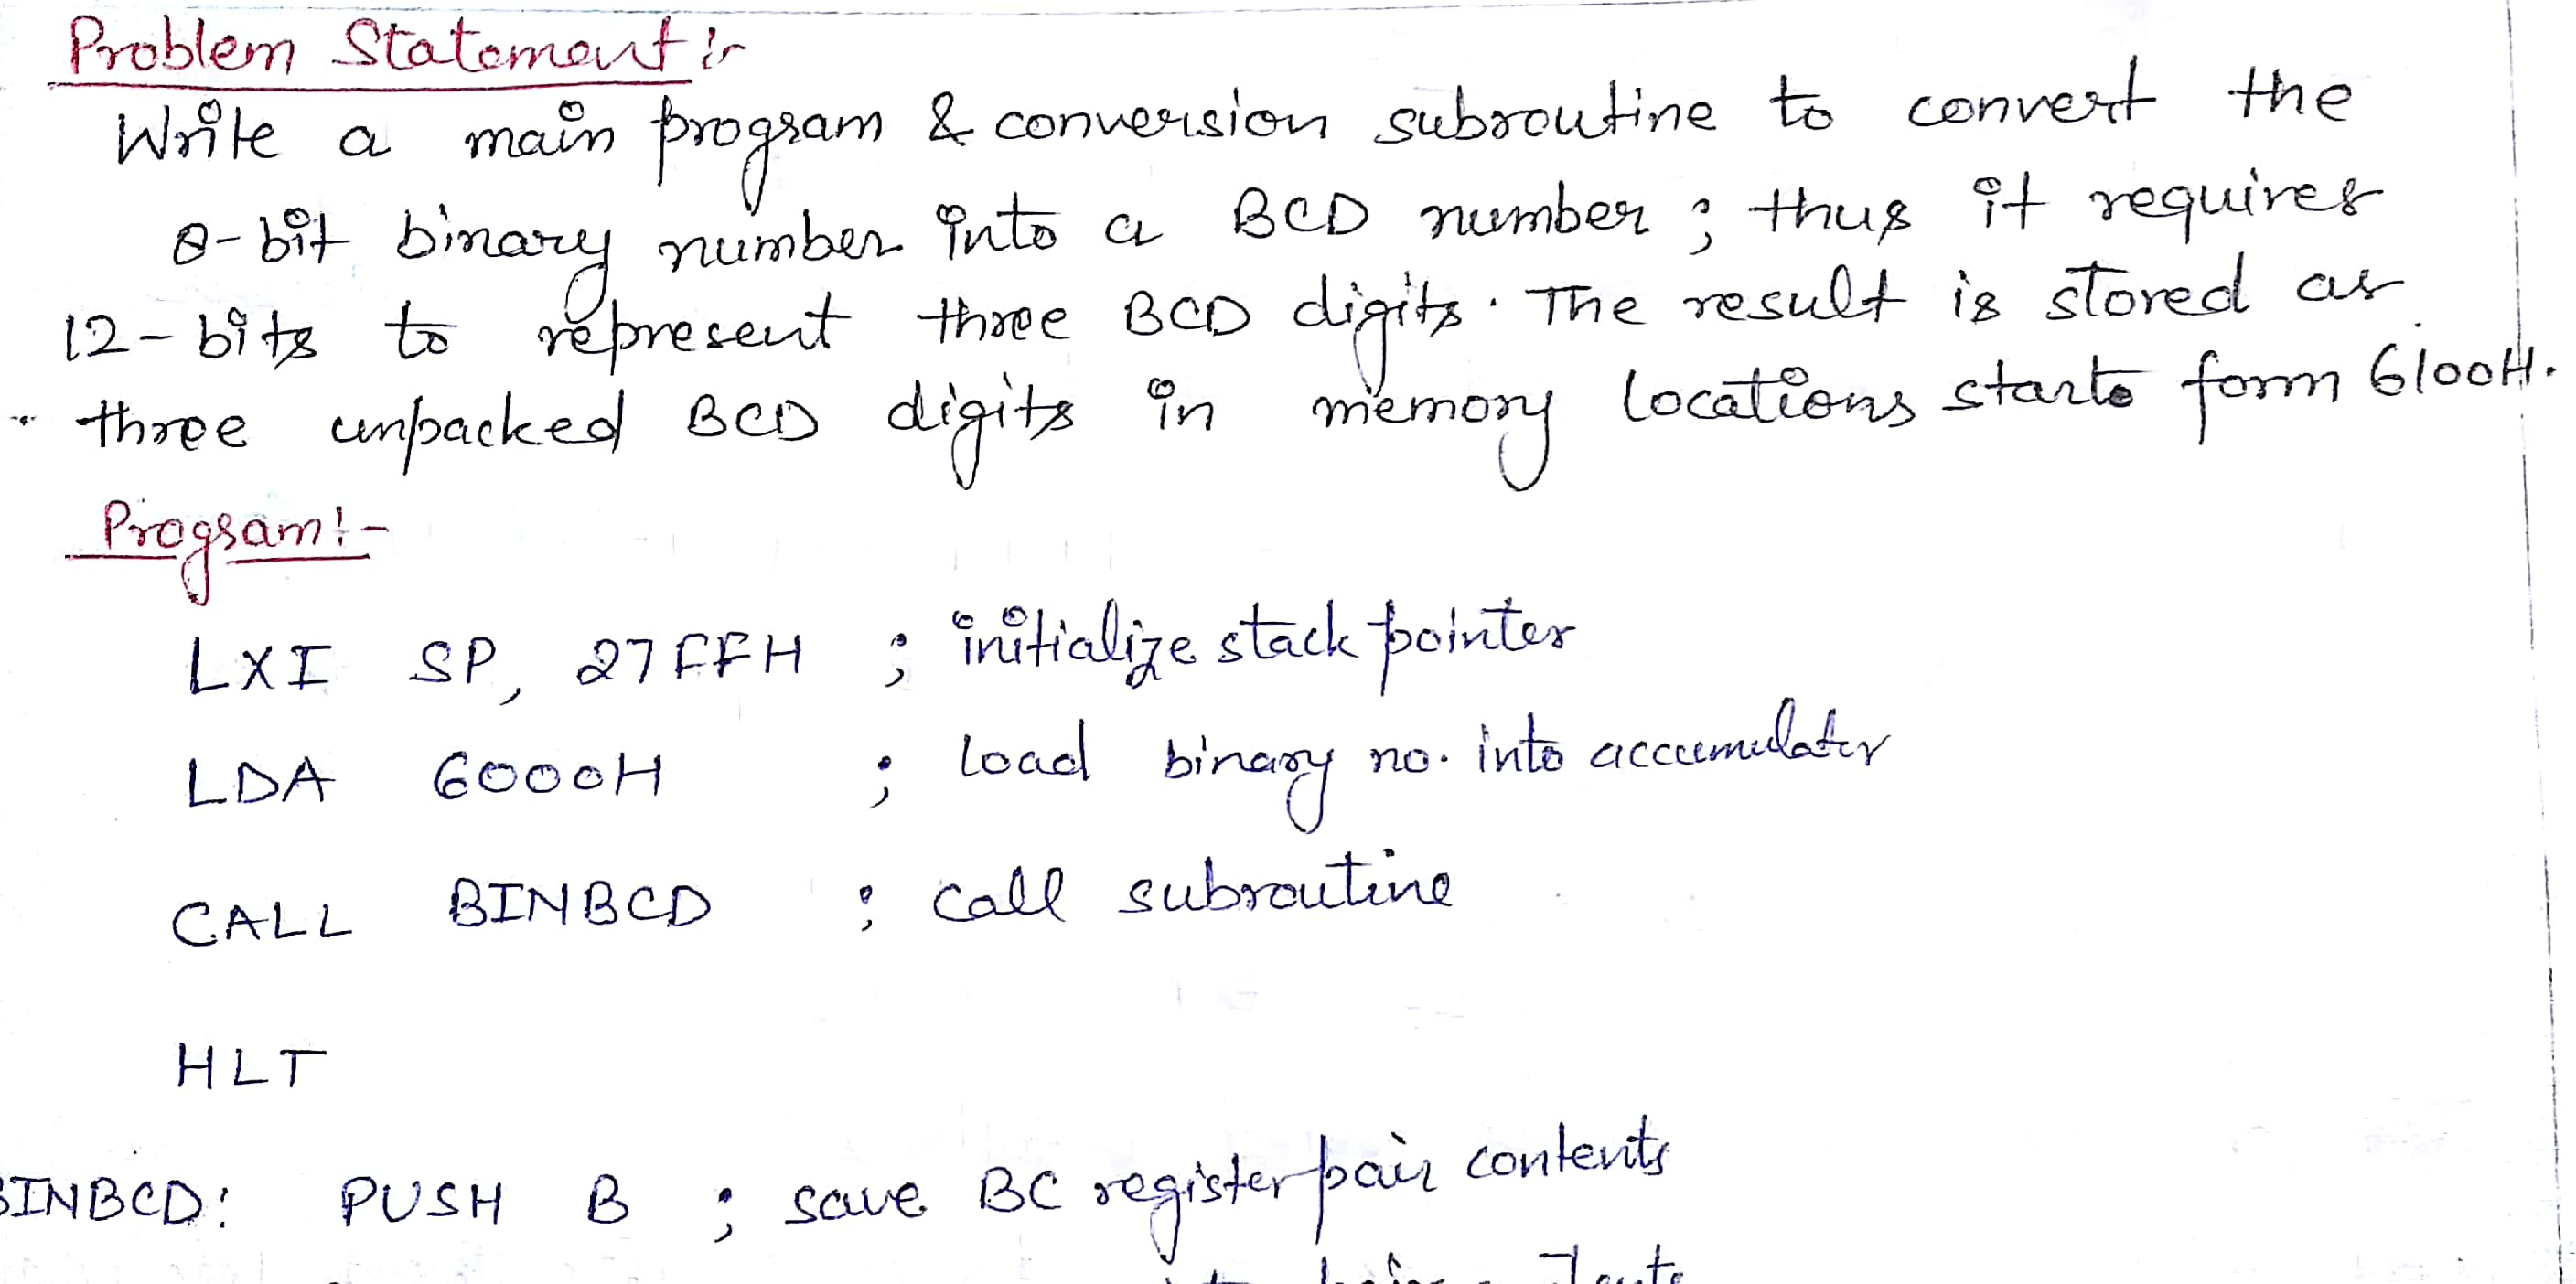 Problem Statement :-
Write a main program & conversion subroutine to convert the
8-bit binary number into a BCD number ; thus it requires
12-bits to represent three BCD digits. The result is stored as
three unpacked BCD digits in memory locations starts form 6100H.
Program :-
LXI SP, 27FFH ; initialize stack pointer
LDA 6000H ; load binary no. into accumulator
CALL BINBCD ; call subroutine
HLT
BINBCD: PUSH B ; save BC register pair contents